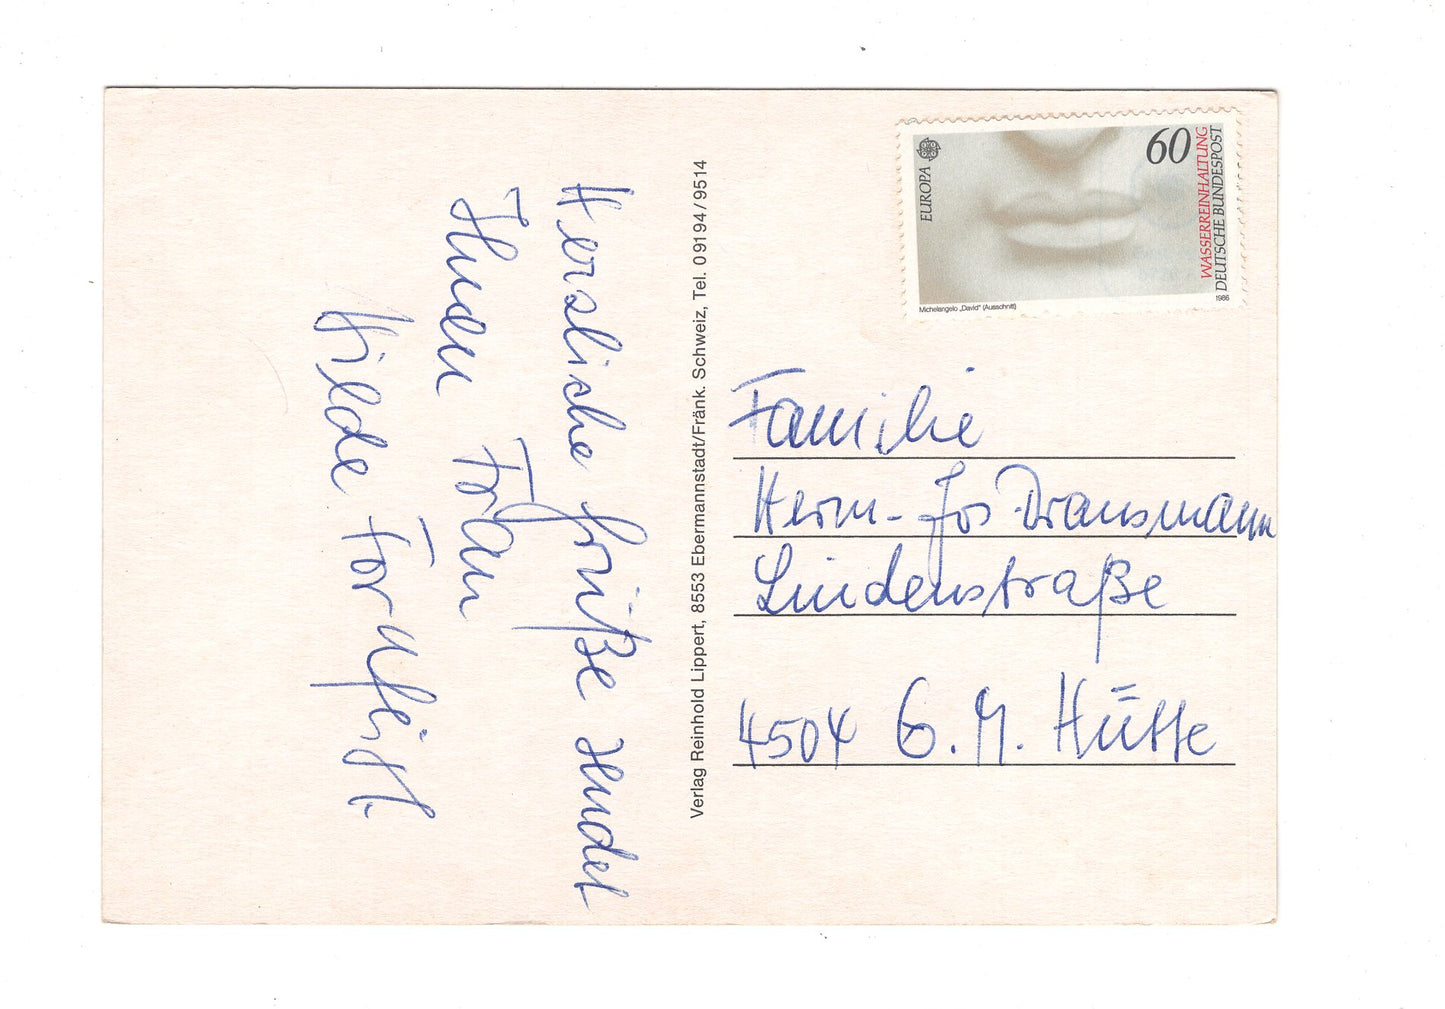 Herzliche Grüße sendet
Ihnen Frau
Hilde
Verlag Reinhold Lippert, 8553 Ebermannstadt/Fränk. Schweiz, Tel. 09194/9514
EUROPA
60
WASSERREINHALTUNG
DEUTSCHE BUNDESPOST
Michelangelo „David" (Ausschnitt)
1986
Familie
Herm-Jos. Dransmann
Lindenstraße
4504 G. M. Hütte